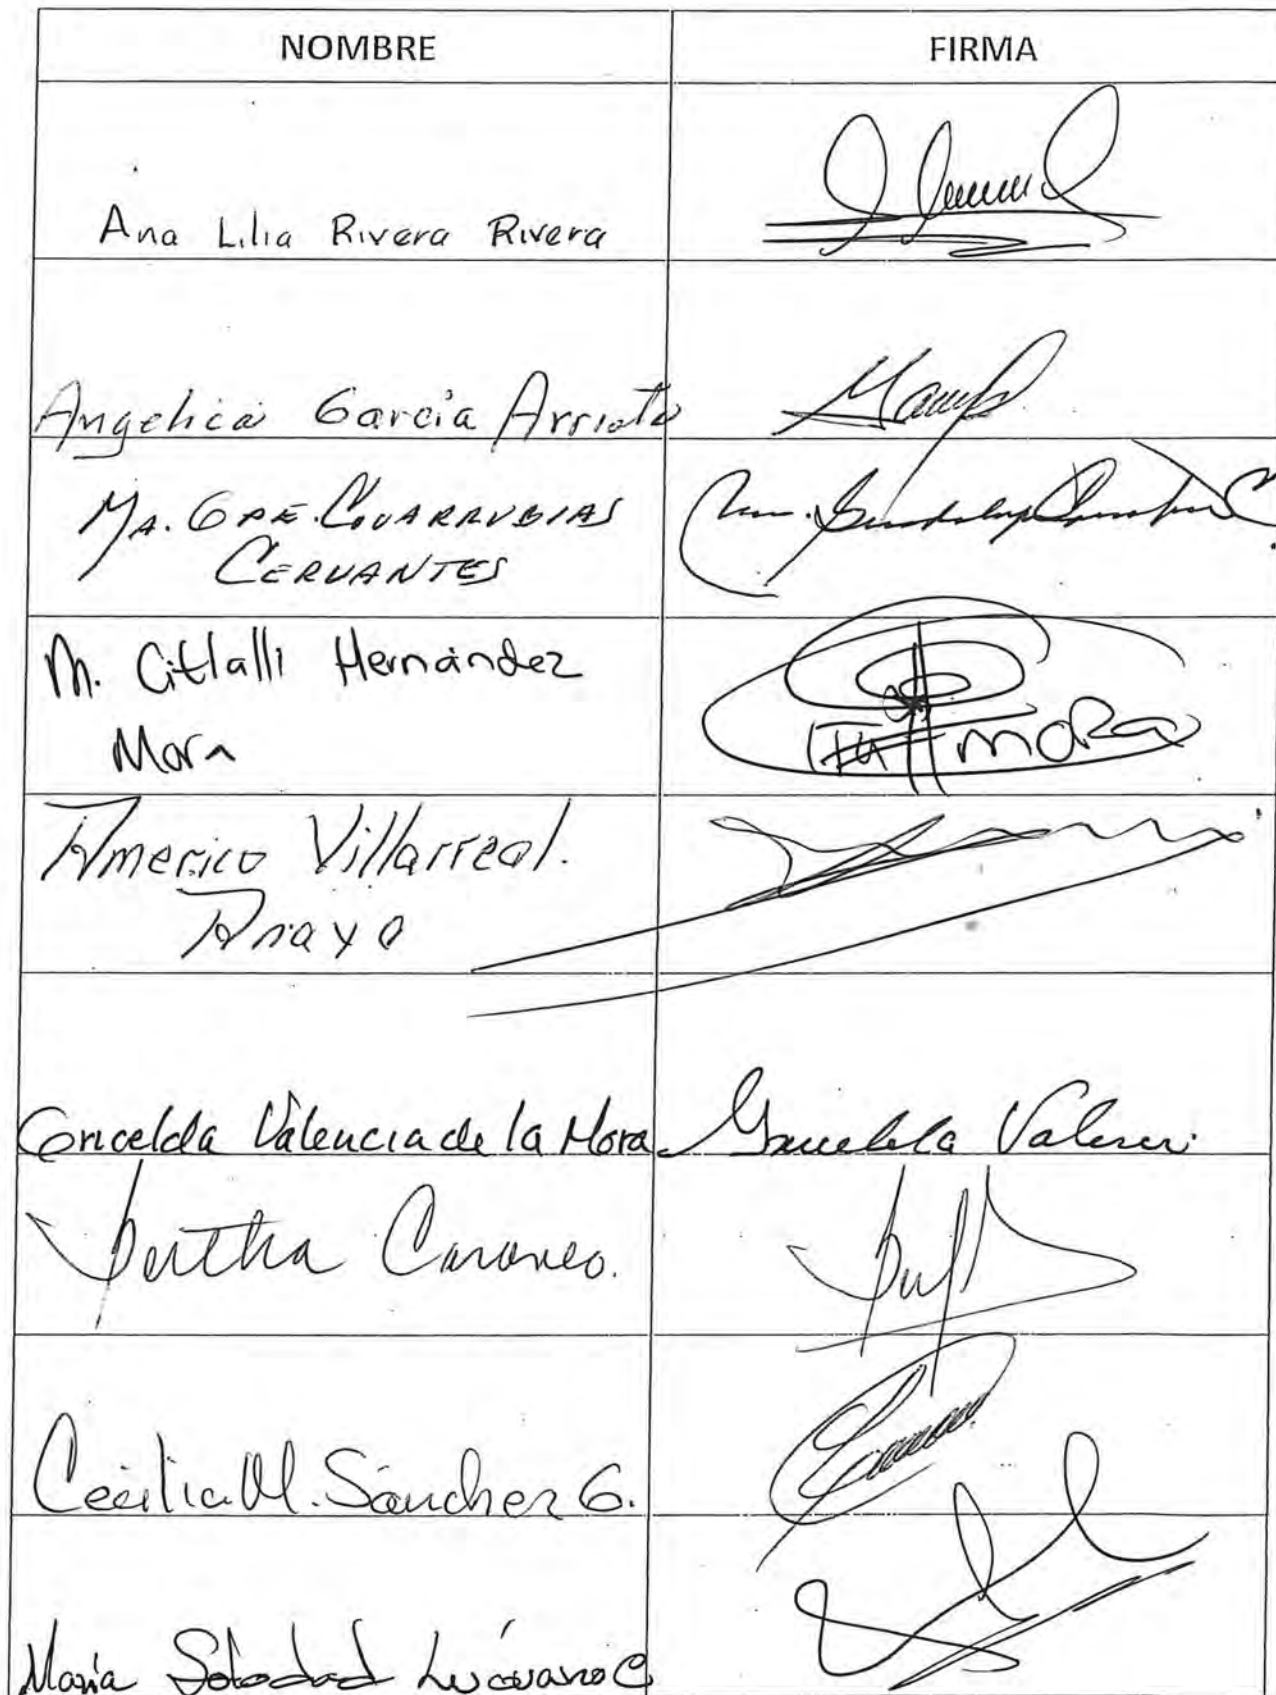 NOMBRE FIRMA
Ana Lilia Rivera Rivera
Angelica García Arrieta
MA. GPE. COVARRUBIAS
CERVANTES
M. Citlalli Hernández
Mora
MORA
Americo Villarreal.
Anaya
Gricelda Valencia de la Mora Gricelda Valenci
Bertha Caraveo.
Cecilia M. Sánchez G.
María Soledad Luévano C